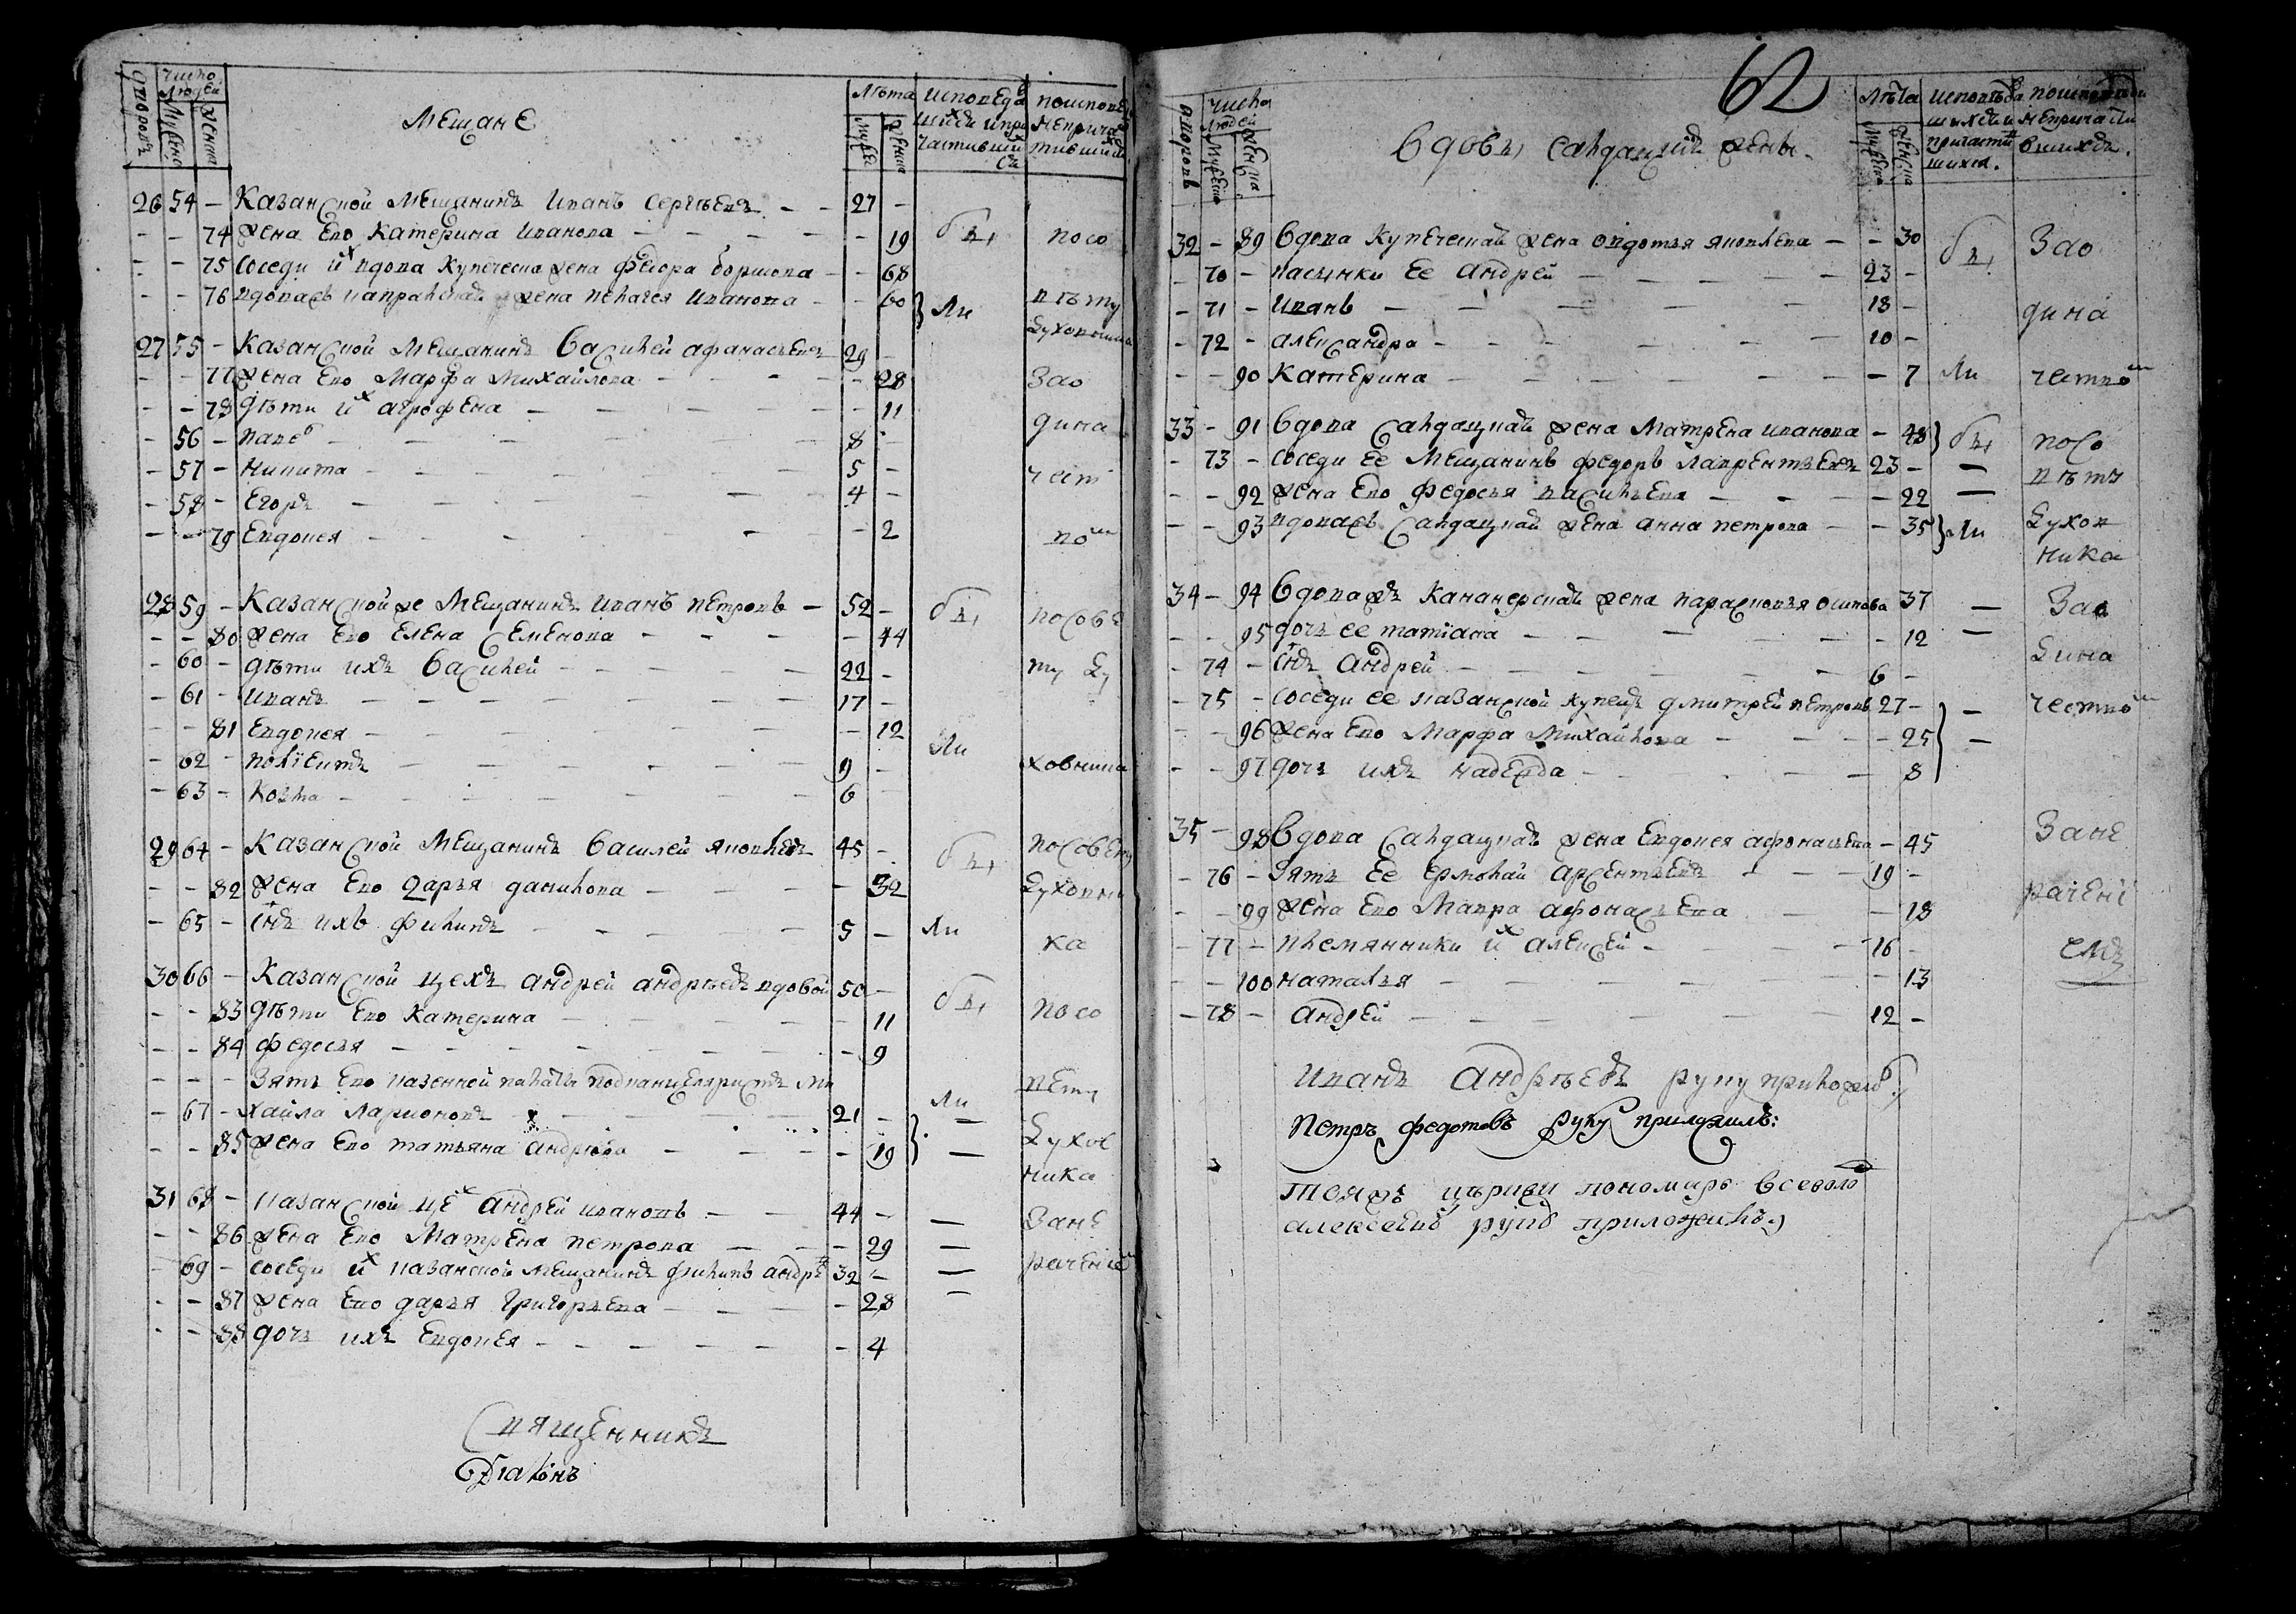 число
людей
дворовъ
мужеска
женска
Мещане
лѣта
муже
женска
исповеда
шихся и при
частивших
ся
по исповеди
неприча
тившихся
26 54 – Казанской мещанинъ Иванъ Сергѣевъ – – 27 –
– – 74 жена ево Катерина Иванова – – 19 бы, посо
– – 75 соседи их вдова купеческа жена Федора Борисова – – 68
– – 76 вдовасъ жена Пелагея Иванова – – 60 ли вѣту
духовника
27 55 – Казанской мещанинъ Василей Афанасьевъ 29 –
– – 77 жена ево Марфа Михайлова – – 28 зао
– – 78 дѣти их Агрофена – – 11
– 56 – Павелъ – 8 – дина
– 57 – Никита – 5 – чест
– 58 – Егоръ – 4 –
– – 79 Евдокея – – 2 вом
28 59 – Казанской же мещанинъ Иванъ Петровъ – 52 – бы, посовѣ
– – 80 жена ево Елена Семенова – – 44
– 60 – дѣти ихъ Василей – 22 – ту ду
– 61 – Иванъ – 17 –
– – 81 Евдокея – – 12
– 62 – Полїевктъ – 9 – ли ховника
– 63 – Козма – 6
29 64 – Казанской мещанинъ Василей Яковлевъ 45 – бы, посовету
– – 82 жена ево Дарья Данилова – – 32 духовни
– 65 – снъ ихъ Филипъ – 5 – ли ка
30 66 – Казанской цехъ Андрей Андрѣевъ вдовой 50 – бы, посо
– – 83 дѣти ево Катерина – – 11
– – 84 Федосья – – 9
– – – зять ево казенной палаты подканцеляристъ Ми вету
– 67 – хайла Ларионовъ – 21 – ли –
– – 85 жена ево Татьяна Андрѣева – – 19 – духов
ника
31 68 – казанской цех Андрей Ивановъ – 44 – – зане
– – 86 жена ево Матрена Петрова – – 29 –
– 69 – соседи их казанской мещанинъ Филипъ Андрѣ 32 – – рачением
– – 87 жена ево Дарья Григорьева – – 28 –
– – 88 дочь ихъ Евдокея – – 4
Священникъ
Дїаконъ
62
дворовъ
число
людей
мужеска
женска
Вдовы, салдацкихъ жены.
лѣта
мужеска
женска
исповѣда
шихся и
причасти
шихся.
по исповеди
непричасти
вшихся.
32 – 89 Вдова купеческая жена Овдотья Яковлева – – 30 бы, зао
– 70 – пасынки ее Андрей – 23 –
– 71 – Иванъ – 18 – дина
– 72 – Александра – 10 –
– – 90 Катерина – – 7 ли честном
33 – 91 Вдова салдацкая жена Матрена Иванова – 48 бы, посо
– 73 – соседи ее мещанинъ Федоръ Лаврентьевъ 23 – – вѣту
– – 92 жена ево Федосья Васильева – – 22 –
– – 93 вдовасъ салдацкая жена Анна Петрова – – 35 ли духов
ника
34 – 94 Вдова жъ жена Парасковья Осипова 37 – зао
– – 95 дочь ее Татїана – – 12 –
– 74 – снъ Андрей – 6 – дина
– 75 – соседи ее казанской купецъ Дмитрей Петровъ 27 – – честном
– – 96 жена ево Марфа Михайлова – – 25 –
– – 97 дочь ихъ Надежда – – 8
35 – 98 Вдова салдацкая жена Евдокея Афонасьева – 45 зане
– 76 – зять ее Ермолай Арсентьевъ – 19 –
– – 99 жена ево Мавра Афонасьева – – 18 рачені
– 77 – племянники их Алексей – 16 –
– – 100 Наталья – – 13 емъ
– 78 – Андрей – 12 –
Иванъ Андрѣевъ руку приложилъ
Петръ Федотовъ руку приложилъ:
Тояжъ церкви пономарь Всеволо
Алексеевъ руку приложилъ